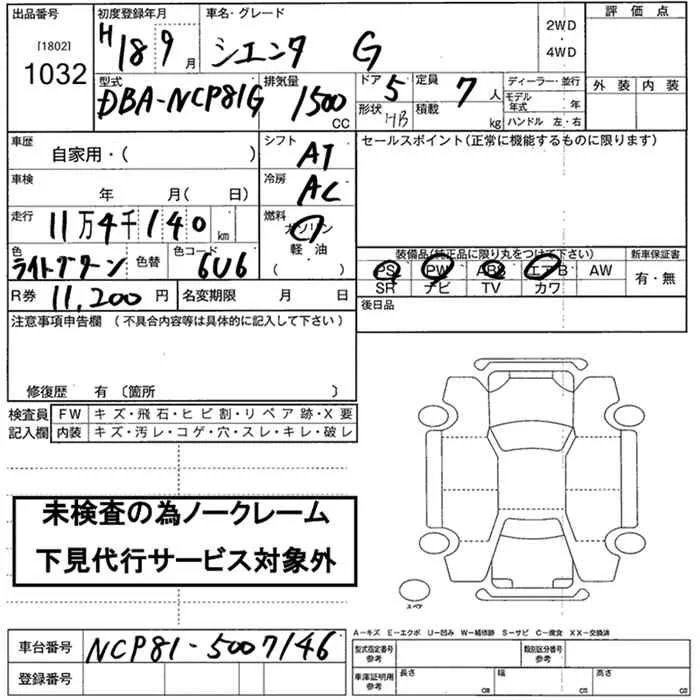 出品番号 [1802] 1032
初度登録年月 H18 9月
車名・グレード シエンタ G
2WD・4WD
評価点
外装 内装
型式 DBA-NCP81G
排気量 1500 CC
ドア 5
形状 HB
定員 7人
積載 kg
ディーラー・並行
モデル年式 年
ハンドル 左・右
車歴 自家用・( )
シフト AT
セールスポイント(正常に機能するものに限ります)
車検 年 月( 日)
冷房 AC
走行 11万4千140km
燃料 ガソリン 軽・油 ( )
色 ライトグリーン 色替
色コード 6U6
装備品(純正品に限り丸をつけて下さい)
PS PW ABS エアB AW
SR ナビ TV カワ
新車保証書 有・無
R券 11,200円
名変期限 月 日
後日品
注意事項申告欄(不具合内容等は具体的に記入して下さい)
修復歴 有〔箇所 〕
検査員記入欄
FW キズ・飛石・ヒビ割・リペア跡・X要
内装 キズ・汚レ・コゲ・穴・スレ・キレ・破レ
未検査の為ノークレーム
下見代行サービス対象外
スペア
A-キズ E-エクボ U-凹み W-補修跡 S-サビ C-腐食 XX-交換済
車台番号 NCP81-5007146
登録番号
型式指定番号 参考
類別区分番号 参考
車庫証明用 参考 長さ cm 幅 cm 高さ cm